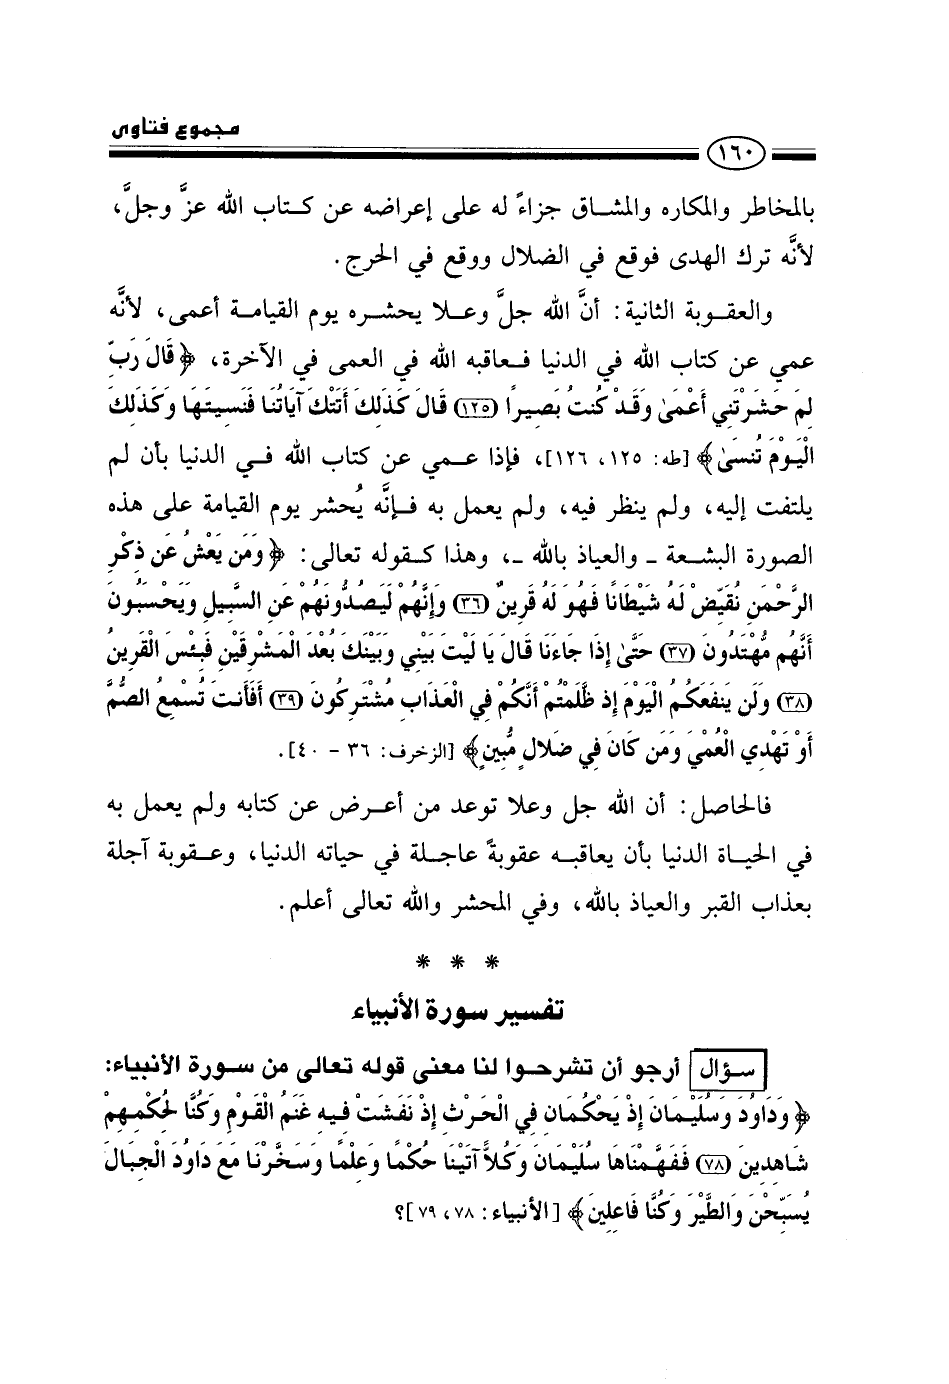 مجموع فتاوى
١٦٠
بالمخاطر والمكاره والمشاق جزاءً له على إعراضه عن كتاب الله عزَّ وجلَّ،
لأنَّه ترك الهدى فوقع في الضلال ووقع في الحرج.
والعقوبة الثانية: أنَّ الله جلَّ وعلا يحشره يوم القيامة أعمى، لأنَّه
عمي عن كتاب الله في الدنيا فعاقبه الله في العمى في الآخرة، ﴿ قَالَ رَبِّ
لِمَ حَشَرْتَنِي أَعْمَىٰ وَقَدْ كُنتُ بَصِيراً (١٢٥) قَالَ كَذَلِكَ أَتَتْكَ آيَاتُنَا فَنَسِيتَهَا وَكَذَلِكَ
الْيَوْمَ تُنسَىٰ ﴾ [طه: ١٢٥، ١٢٦]، فإذا عمي عن كتاب الله في الدنيا بأن لم
يلتفت إليه، ولم ينظر فيه، ولم يعمل به فإنَّه يُحشر يوم القيامة على هذه
الصورة البشعة ـ والعياذ بالله ـ، وهذا كقوله تعالى: ﴿ وَمَن يَعْشُ عَن ذِكْرِ
الرَّحْمَنِ نُقَيِّضْ لَهُ شَيْطَانًا فَهُوَ لَهُ قَرِينٌ (٣٦) وَإِنَّهُمْ لَيَصُدُّونَهُمْ عَنِ السَّبِيلِ وَيَحْسَبُونَ
أَنَّهُم مُّهْتَدُونَ (٣٧) حَتَّىٰ إِذَا جَاءَنَا قَالَ يَا لَيْتَ بَيْنِي وَبَيْنَكَ بُعْدَ الْمَشْرِقَيْنِ فَبِئْسَ الْقَرِينُ
(٣٨) وَلَن يَنفَعَكُمُ الْيَوْمَ إِذ ظَّلَمْتُمْ أَنَّكُمْ فِي الْعَذَابِ مُشْتَرِكُونَ (٣٩) أَفَأَنتَ تُسْمِعُ الصُّمَّ
أَوْ تَهْدِي الْعُمْيَ وَمَن كَانَ فِي ضَلالٍ مُّبِينٍ ﴾ [الزخرف: ٣٦ - ٤٠].
فالحاصل: أن الله جل وعلا توعد من أعرض عن كتابه ولم يعمل به
في الحياة الدنيا بأن يعاقبه عقوبةً عاجلة في حياته الدنيا، وعقوبة آجلة
بعذاب القبر والعياذ بالله، وفي المحشر والله تعالى أعلم.
* * *
تفسير سورة الأنبياء
سؤال أرجو أن تشرحوا لنا معنى قوله تعالى من سورة الأنبياء:
﴿ وَدَاوُدَ وَسُلَيْمَانَ إِذْ يَحْكُمَانِ فِي الْحَرْثِ إِذْ نَفَشَتْ فِيهِ غَنَمُ الْقَوْمِ وَكُنَّا لِحُكْمِهِمْ
شَاهِدِينَ (٧٨) فَفَهَّمْنَاهَا سُلَيْمَانَ وَكُلاًّ آتَيْنَا حُكْمًا وَعِلْمًا وَسَخَّرْنَا مَعَ دَاوُدَ الْجِبَالَ
يُسَبِّحْنَ وَالطَّيْرَ وَكُنَّا فَاعِلِينَ ﴾ [الأنبياء: ٧٨، ٧٩]؟